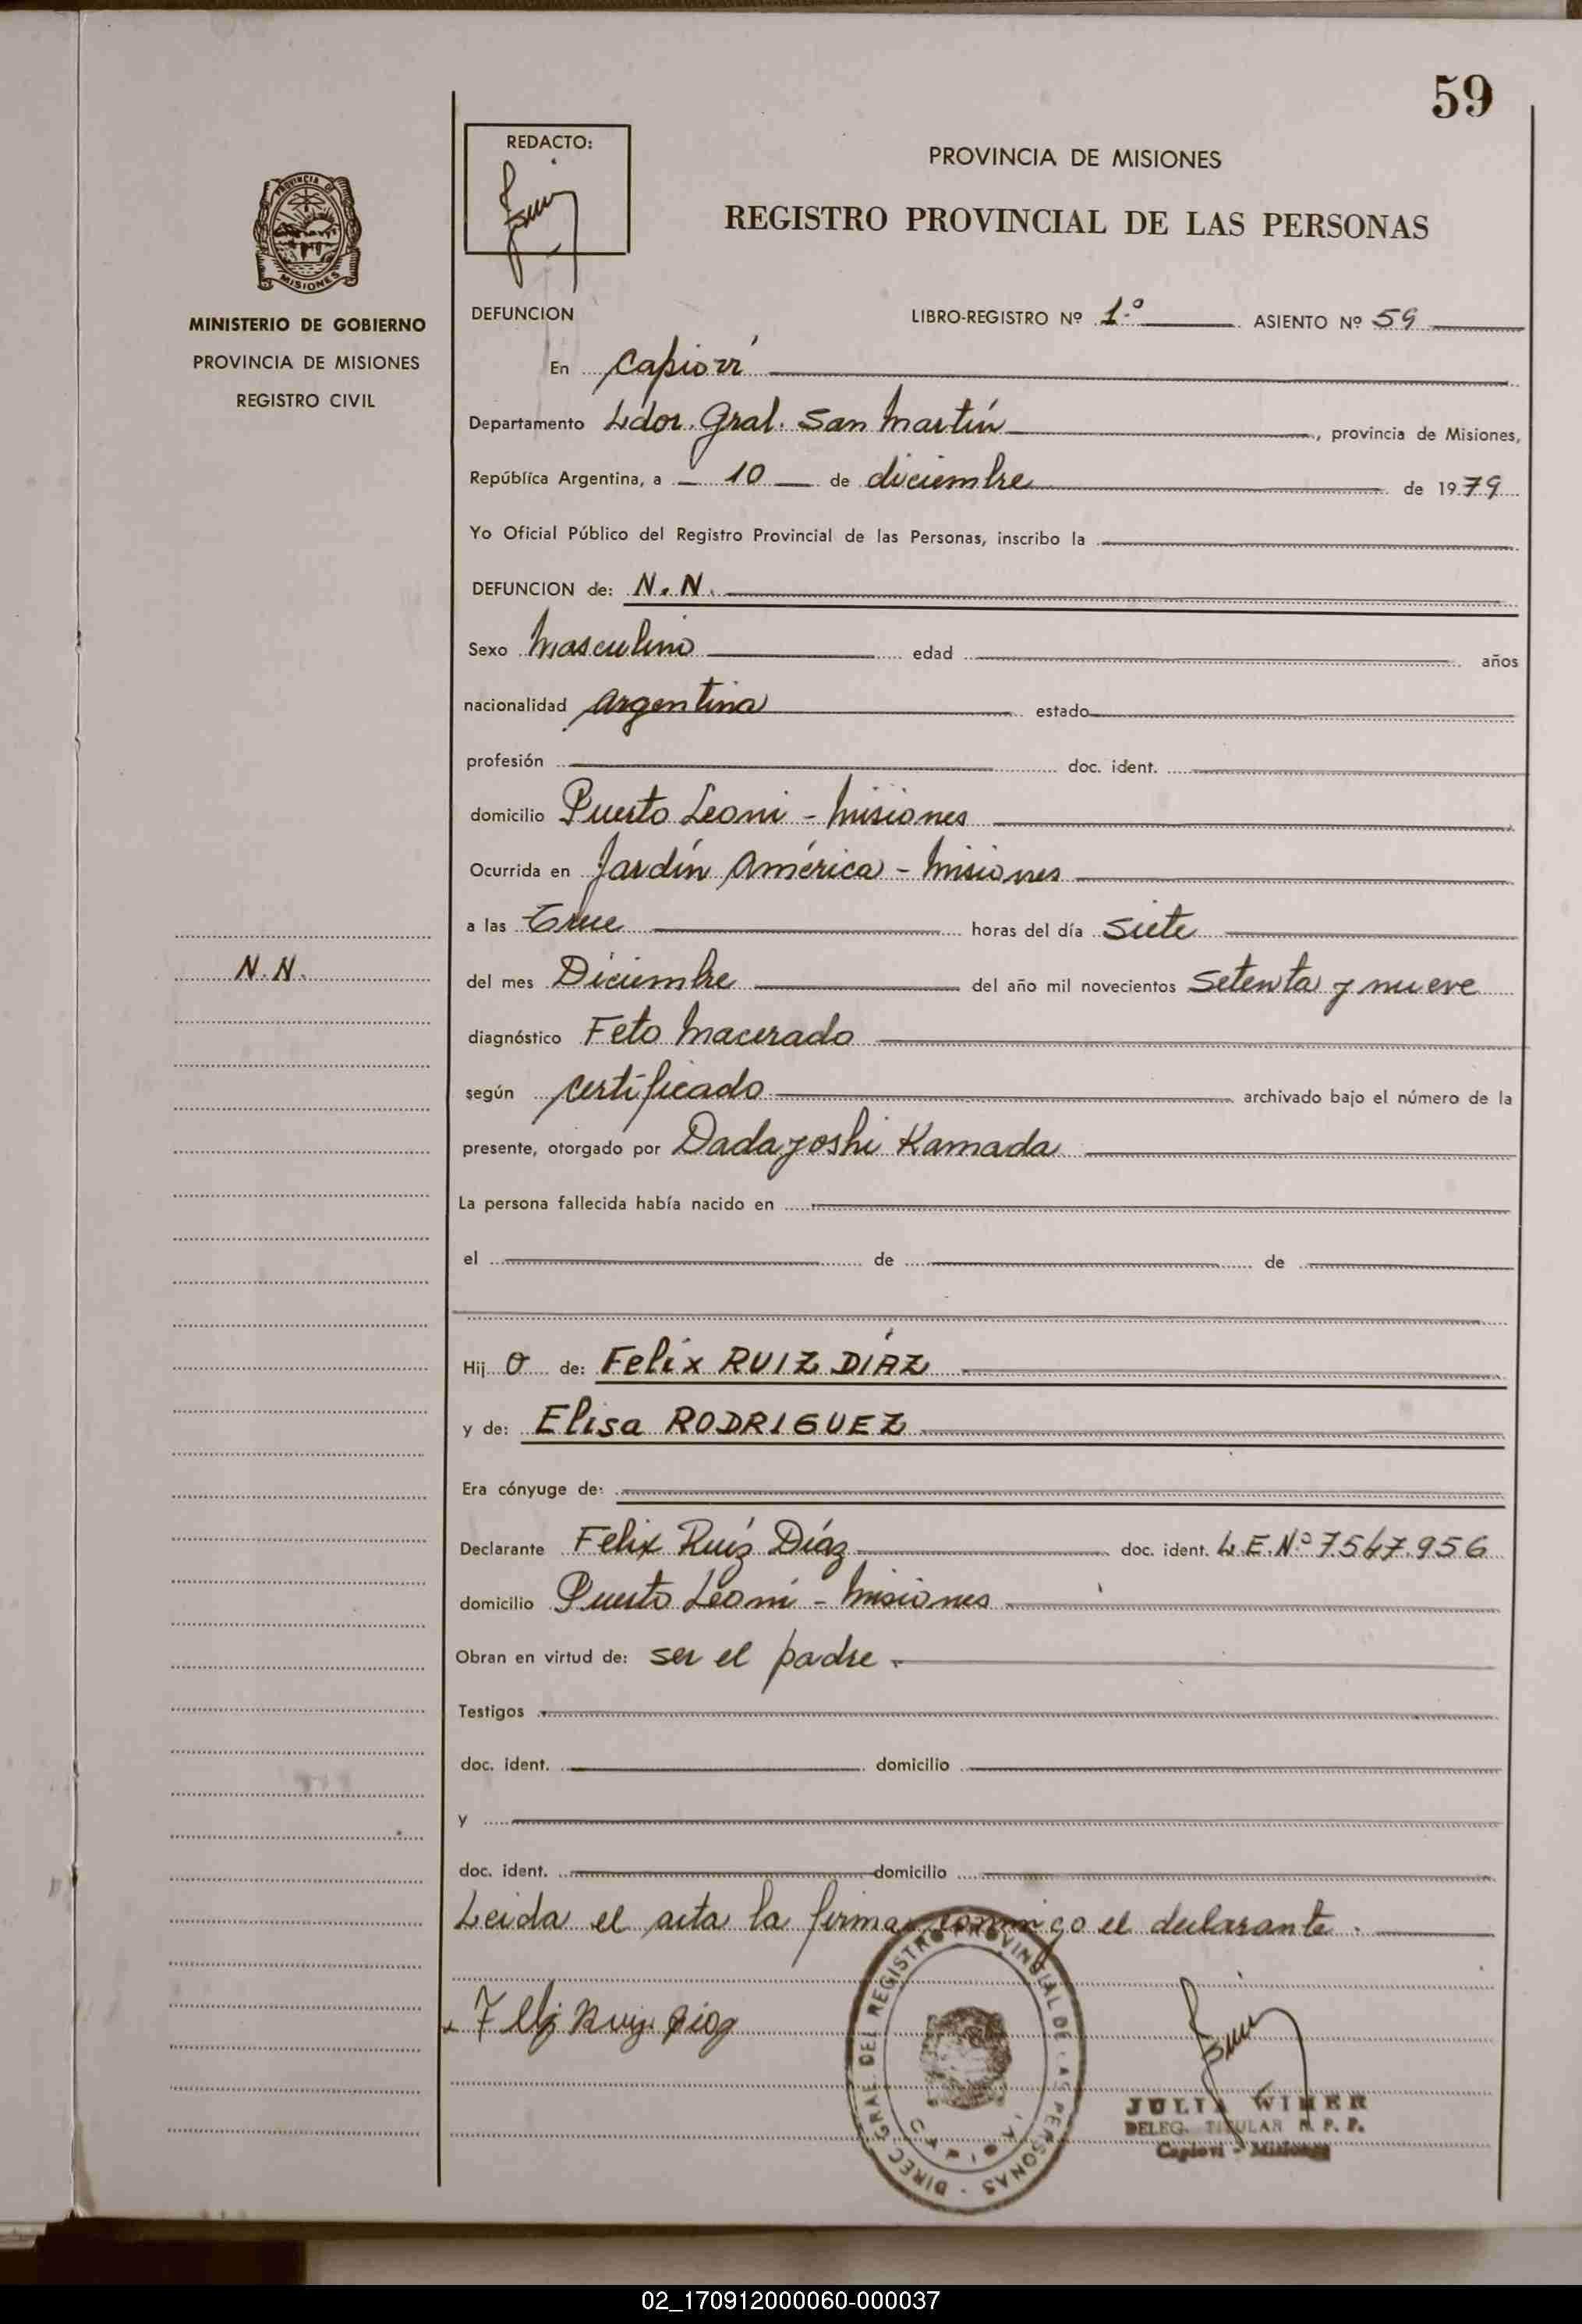 59
REDACTO:
PROVINCIA DE MISIONES
REGISTRO PROVINCIAL DE LAS PERSONAS
PROVINCIA DE
MISIONES
MINISTERIO DE GOBIERNO
PROVINCIA DE MISIONES
REGISTRO CIVIL
DEFUNCION LIBRO-REGISTRO Nº 1.º ASIENTO Nº 59
En Capioví
Departamento Ldor. Gral. San Martín, provincia de Misiones,
República Argentina, a 10 de diciembre de 1979
Yo Oficial Público del Registro Provincial de las Personas, inscribo la
DEFUNCION de: N.N.
Sexo Masculino edad años
nacionalidad argentina estado
profesión doc. ident.
domicilio Puerto Leoni - Misiones
Ocurrida en Jardín América - Misiones
a las Trece horas del día Siete
N.N.
del mes Diciembre del año mil novecientos Setenta y nueve
diagnóstico Feto Macerado
según certificado archivado bajo el número de la
presente, otorgado por Dadayoshi Kamada
La persona fallecida había nacido en
el de de
Hijo de: Felix RUIZ DÍAZ
y de: Elisa RODRIGUEZ
Era cónyuge de:
Declarante Felix Ruíz Díaz doc. ident. L.E.Nº 7.547.956
domicilio Puerto Leoni - Misiones
Obran en virtud de: ser el padre.
Testigos
doc. ident. domicilio
y
doc. ident. domicilio
Leida el acta la firma conmigo el declarante.
DIREC. GRAL. DEL REGISTRO PROVINCIAL DE LAS PERSONAS
JULIA WIMER
DELEG. TITULAR R. P. P.
Capioví - Misiones
02_170912000060-000037